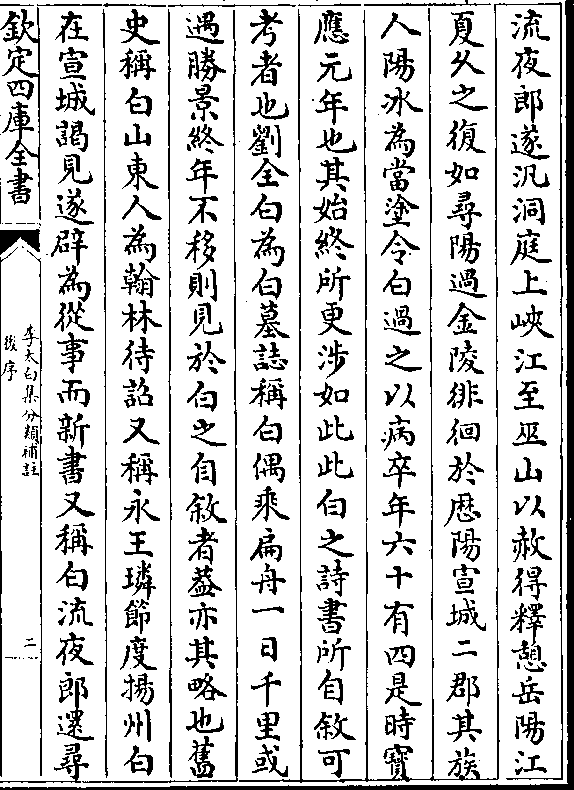 流夜郎遂汎洞庭上峽江至巫山以赦得釋憩岳陽江
夏久之復如尋陽過金陵徘徊於歴陽宣城二郡其族
人陽冰為當塗令白過之以病卒年六十有四是時寶
應元年也其始終所更涉如此此白之詩書所自敘可
考者也劉全白為白墓誌稱白偶乘扁舟一日千里或
遇勝景終年不移則見於白之自敘者葢亦其略也舊
史稱白山東人為翰林待詔又稱永王璘節度揚州白
在宣城謁見遂辟為從事而新書又稱白流夜郎還尋
欽定四庫全書
李太白集分類補註
後序
二